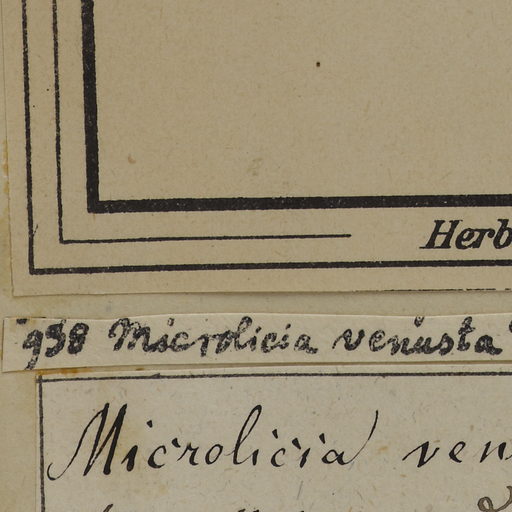 Herb
938 Microlicia venusta
Microlicia ven